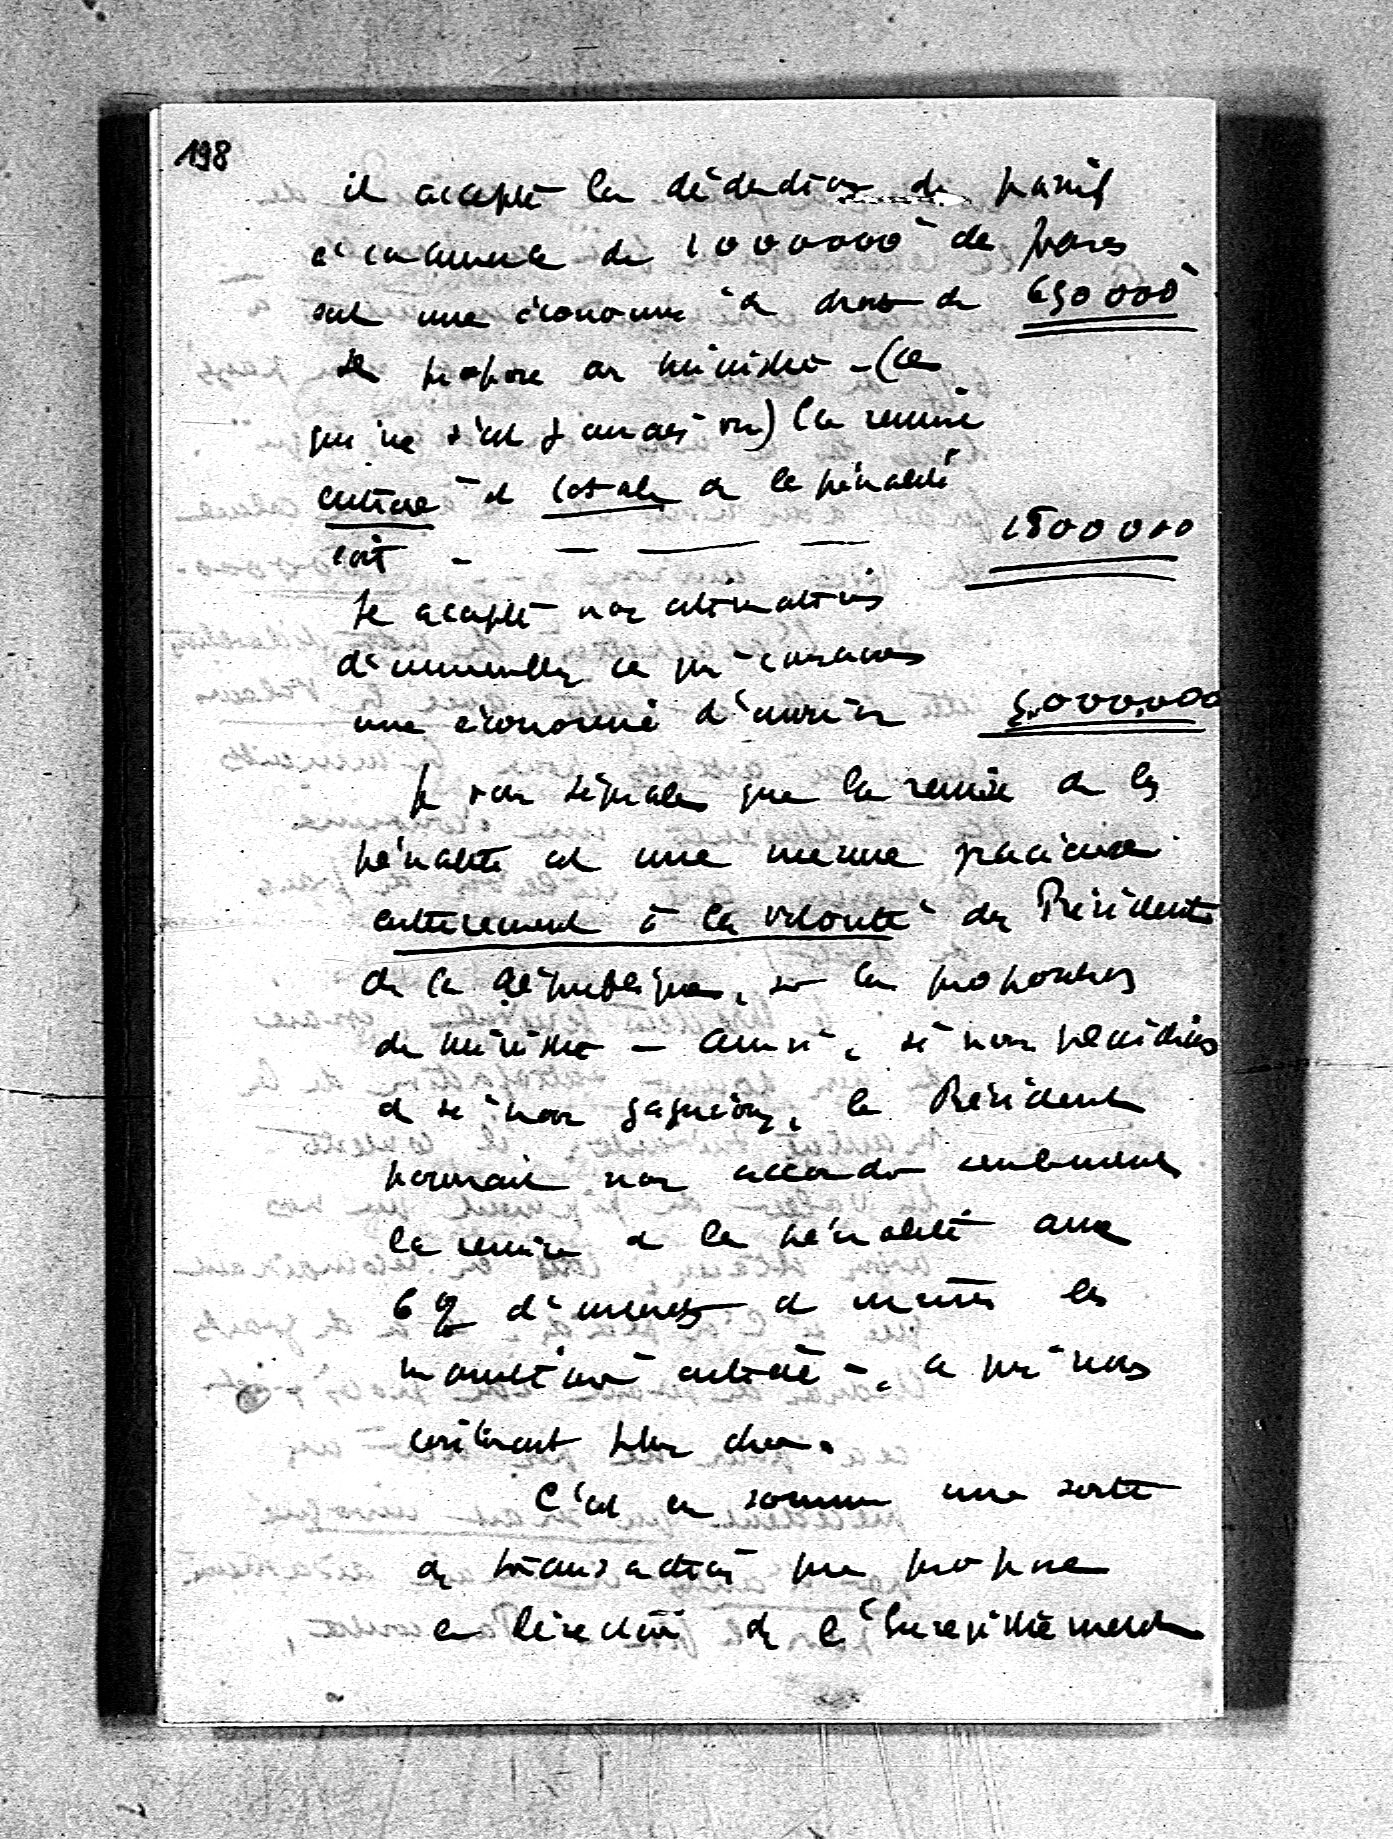 198
il accepte la déduction du passif
à concurrence de 1 000 000 de francs
soit une économie de droits de 650 000
Il propose au ministre - (ce
qui ne s'est jamais vu) la remise
entière et totale de la pénalité
soit - - - - 1800 000
Il accepte nos estimations
d'immeubles ce qui
une économie d'environ 5.000.000
Je vous signale que la remise de la
pénalité est une mesure gracieuse
entièrement à la volonté du Président
de la République, sur la proposition
du ministre - Aussi, si nous plaidions
et si nous gagnions, le Président
pourrait nous accorder seulement
la remise de la pénalité avec
6 % d'intérêts et même les
maintenir entière -, ce qui nous
coûterait plus cher.
C'est en somme une sorte
de transaction que propose
la direction de l'Enregistrement